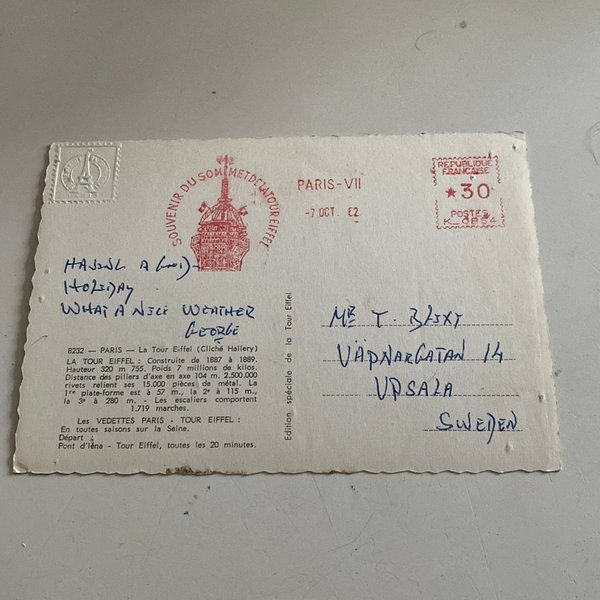 SOUVENIR DU SOMMET DE LA TOUR EIFFEL
PARIS-VII
-7 OCT. 62
REPUBLIQUE
FRANCAISE
★30
POSTES
HAVING A GOOD
HOLIDAY
WHAT A NICE WEATHER
GEORGE
8232 — PARIS — La Tour Eiffel (Cliché Hallery)
LA TOUR EIFFEL : Construite de 1887 à 1889.
Hauteur 320 m 755. Poids 7 millions de kilos.
Distance des piliers d'axe en axe 104 m. 2.500.000
rivets relient ses 15.000 pièces de métal. La
1re plate-forme est à 57 m., la 2e à 115 m.,
la 3e à 280 m. - Les escaliers comportent
1.719 marches.
Les VEDETTES PARIS - TOUR EIFFEL :
En toutes saisons sur la Seine.
Départ :
Pont d'Iéna - Tour Eiffel, toutes les 20 minutes.
Edition spéciale de la Tour Eiffel
MR T. BLIXT
VÄPNARGATAN 14
UPSALA
SWEDEN